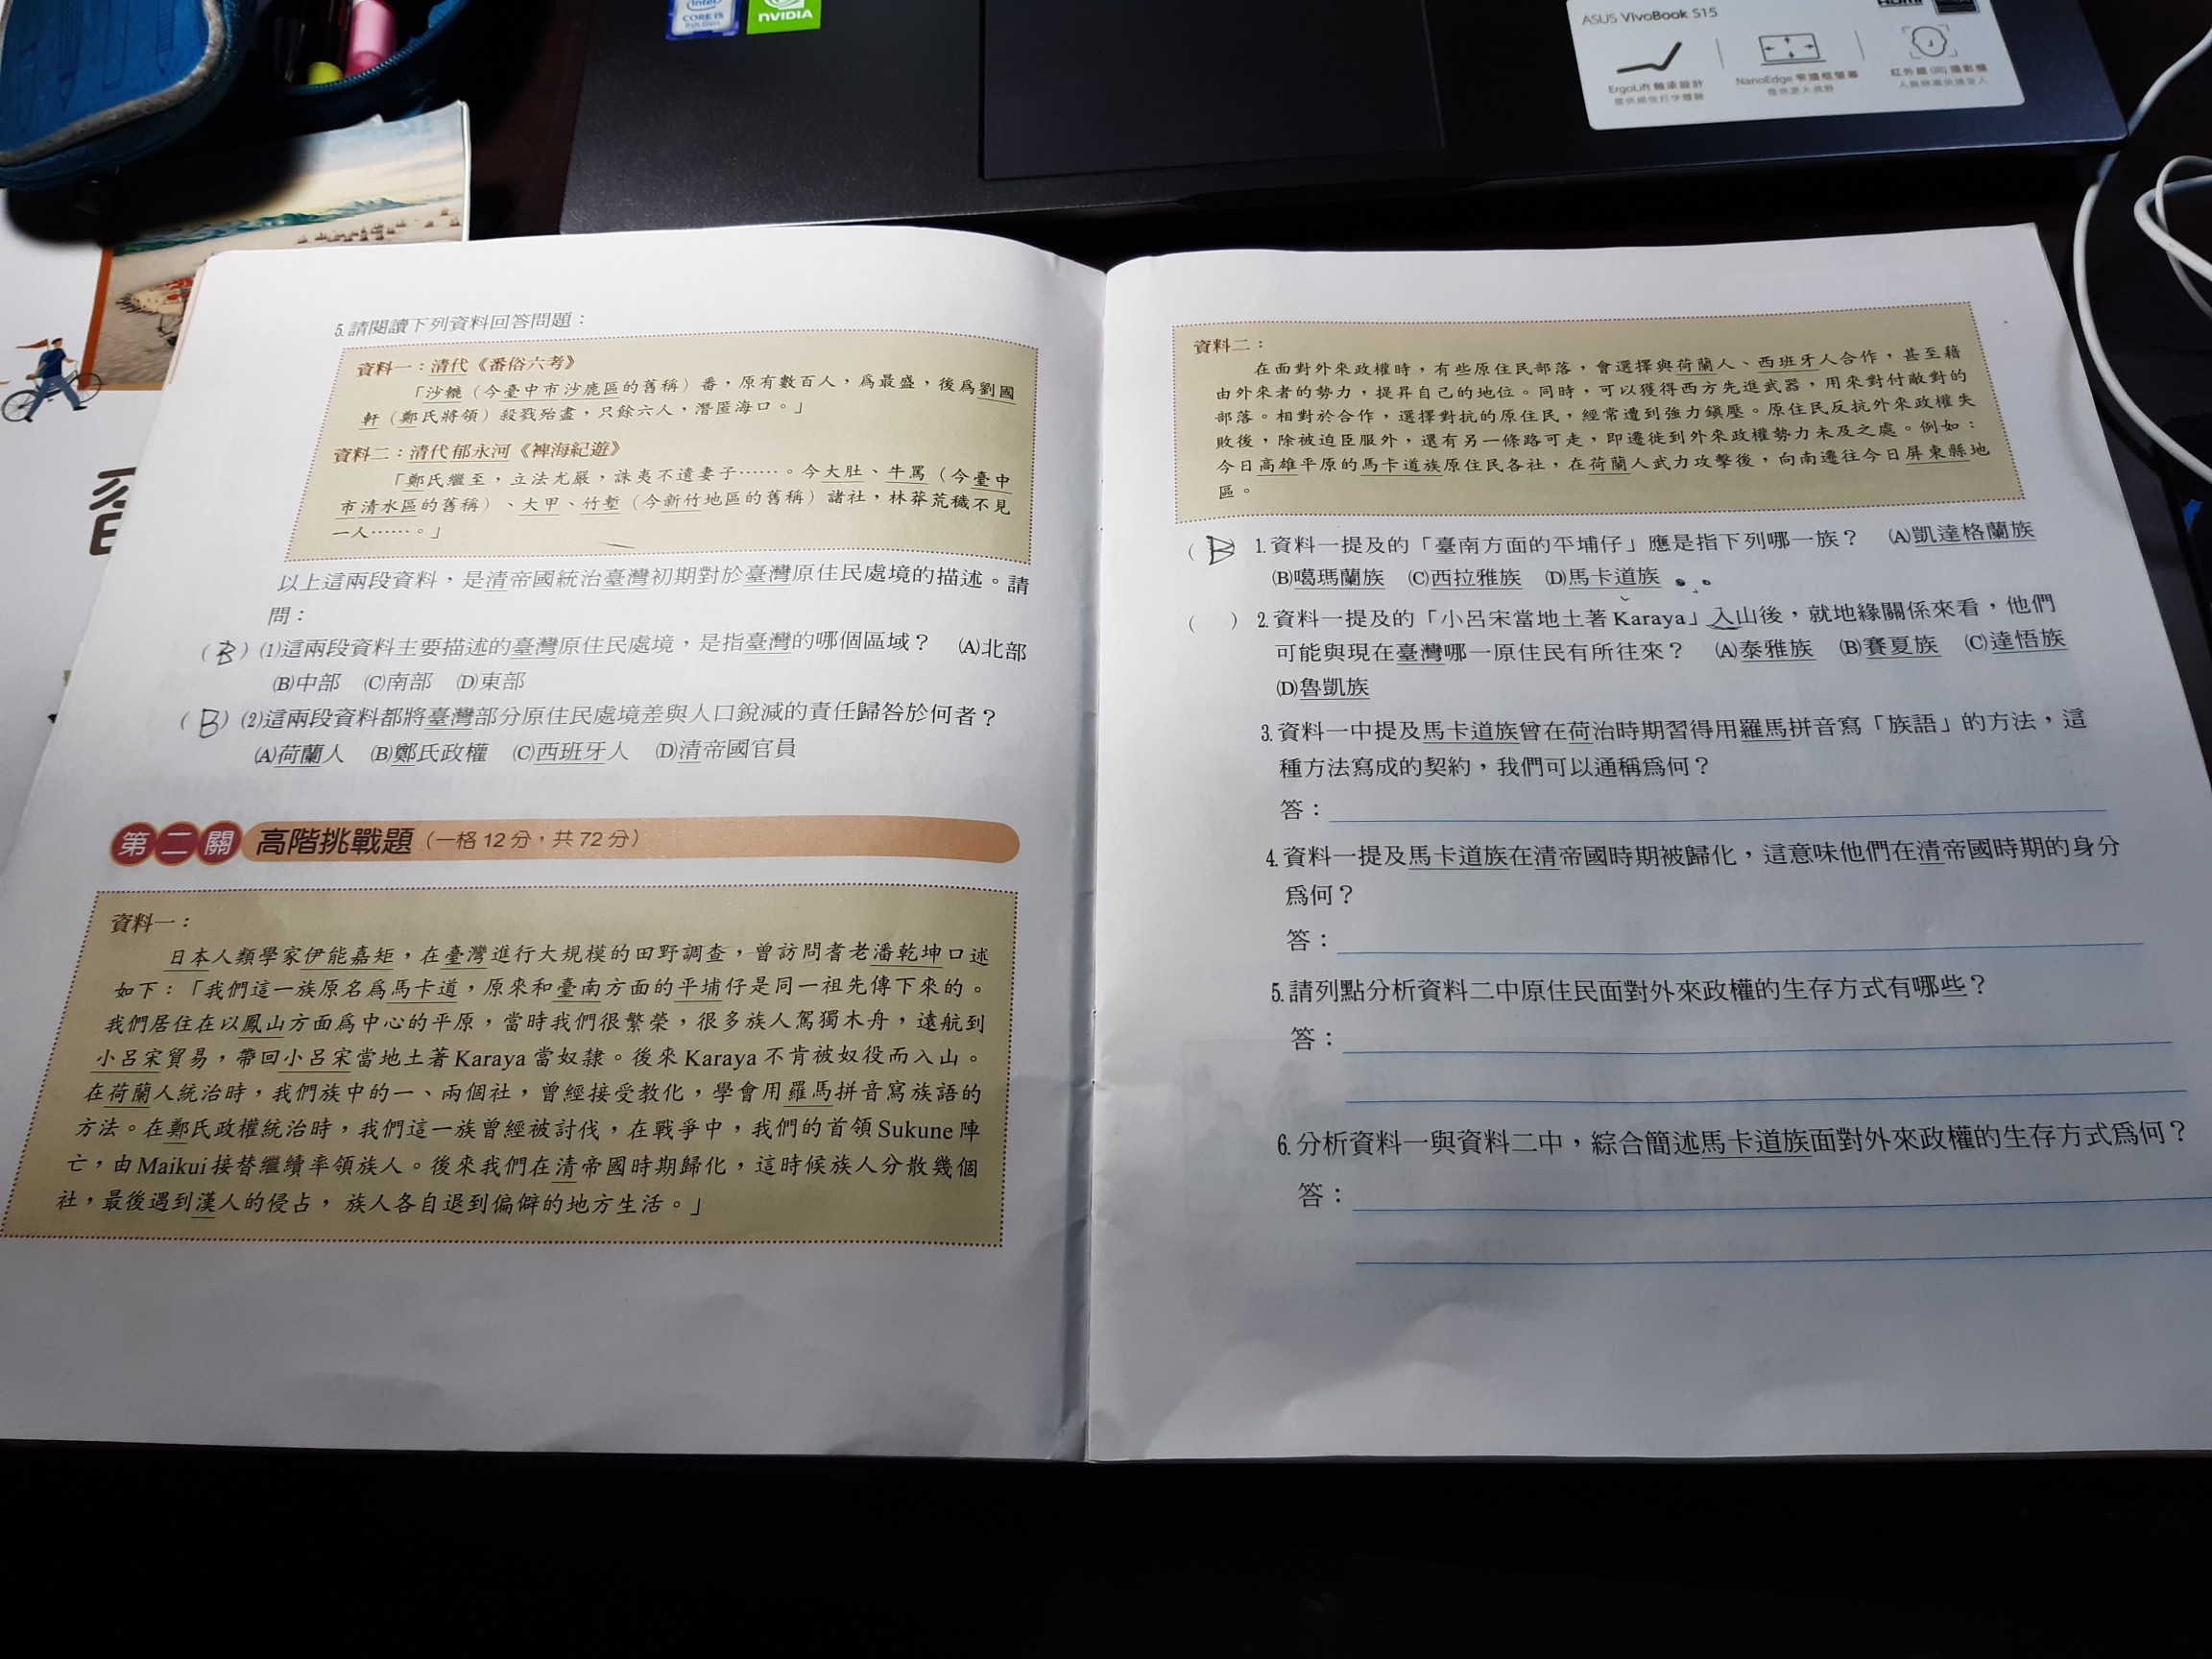 intel
CORE i5
8th Gen
NVIDIA
ASUS VivoBook S15
HDMI
ErgoLift 軸承設計
提供絕佳打字體驗
NanoEdge 窄邊框螢幕
提供更大視野
紅外線(IR)攝影機
人臉辨識快速登入
5.請閱讀下列資料回答問題：
資料一：清代《番俗六考》
「沙轆（今臺中市沙鹿區的舊稱）番，原有數百人，為最盛，後為劉國
軒（鄭氏將領）殺戮殆盡，只餘六人，潛匿海口。」
資料二：清代郁永河《裨海紀遊》
「鄭氏繼至，立法尤嚴，誅夷不遺妻子……。今大肚、牛罵（今臺中
市清水區的舊稱）、大甲、竹塹（今新竹地區的舊稱）諸社，林莽荒穢不見
一人……。」
以上這兩段資料，是清帝國統治臺灣初期對於臺灣原住民處境的描述。請
問：
（B）(1)這兩段資料主要描述的臺灣原住民處境，是指臺灣的哪個區域？　(A)北部
(B)中部　(C)南部　(D)東部
（B）(2)這兩段資料都將臺灣部分原住民處境差與人口銳減的責任歸咎於何者？
(A)荷蘭人　(B)鄭氏政權　(C)西班牙人　(D)清帝國官員
第二關　高階挑戰題（一格12分，共72分）
資料一：
日本人類學家伊能嘉矩，在臺灣進行大規模的田野調查，曾訪問耆老潘乾坤口述
如下：「我們這一族原名為馬卡道，原來和臺南方面的平埔仔是同一祖先傳下來的。
我們居住在以鳳山方面為中心的平原，當時我們很繁榮，很多族人駕獨木舟，遠航到
小呂宋貿易，帶回小呂宋當地土著Karaya當奴隸。後來Karaya不肯被奴役而入山。
在荷蘭人統治時，我們族中的一、兩個社，曾經接受教化，學會用羅馬拼音寫族語的
方法。在鄭氏政權統治時，我們這一族曾經被討伐，在戰爭中，我們的首領Sukune陣
亡，由Maikui接替繼續率領族人。後來我們在清帝國時期歸化，這時候族人分散幾個
社，最後遇到漢人的侵占，族人各自退到偏僻的地方生活。」
資料二：
在面對外來政權時，有些原住民部落，會選擇與荷蘭人、西班牙人合作，甚至藉
由外來者的勢力，提昇自己的地位。同時，可以獲得西方先進武器，用來對付敵對的
部落。相對於合作，選擇對抗的原住民，經常遭到強力鎮壓。原住民反抗外來政權失
敗後，除被迫臣服外，還有另一條路可走，即遷徙到外來政權勢力未及之處。例如：
今日高雄平原的馬卡道族原住民各社，在荷蘭人武力攻擊後，向南遷往今日屏東縣地
區。
（B）1.資料一提及的「臺南方面的平埔仔」應是指下列哪一族？　(A)凱達格蘭族
(B)噶瑪蘭族　(C)西拉雅族　(D)馬卡道族
（　）2.資料一提及的「小呂宋當地土著Karaya」入山後，就地緣關係來看，他們
可能與現在臺灣哪一原住民有所往來？　(A)泰雅族　(B)賽夏族　(C)達悟族
(D)魯凱族
3.資料一中提及馬卡道族曾在荷治時期習得用羅馬拼音寫「族語」的方法，這
種方法寫成的契約，我們可以通稱為何？
答：
4.資料一提及馬卡道族在清帝國時期被歸化，這意味他們在清帝國時期的身分
為何？
答：
5.請列點分析資料二中原住民面對外來政權的生存方式有哪些？
答：
6.分析資料一與資料二中，綜合簡述馬卡道族面對外來政權的生存方式為何？
答：